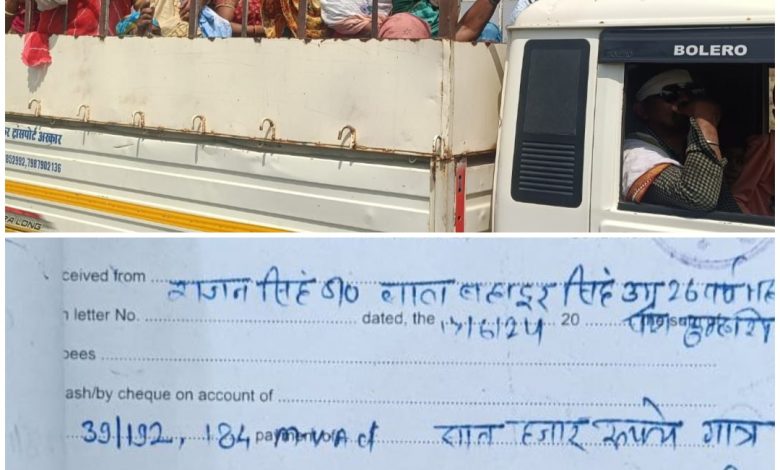 BOLERO
र ट्रांसपोर्ट अरकार
852992,7987982136
RA LONG
ceived from राजन सिंह S/o लाल बहादुर सिंह उम्र 26 वर्ष
letter No. dated, the 20
pees
ash/by cheque on account of
39/192, 184 payment of m v A ct सात हजार रूपये मात्र